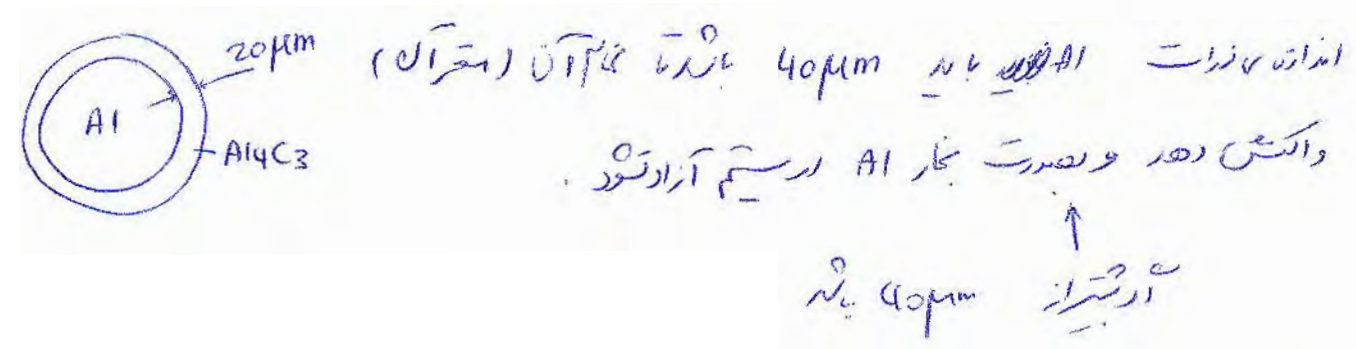 20μm
Al
Al4C3
اندازه ی ذرات Al باید 40μm باشد تا تمام آن (مقر آن)
واکنش دهد و بصورت بخار Al در سیستم آزاد نشود.
↑
اگر بیشتر از 40μm باشد